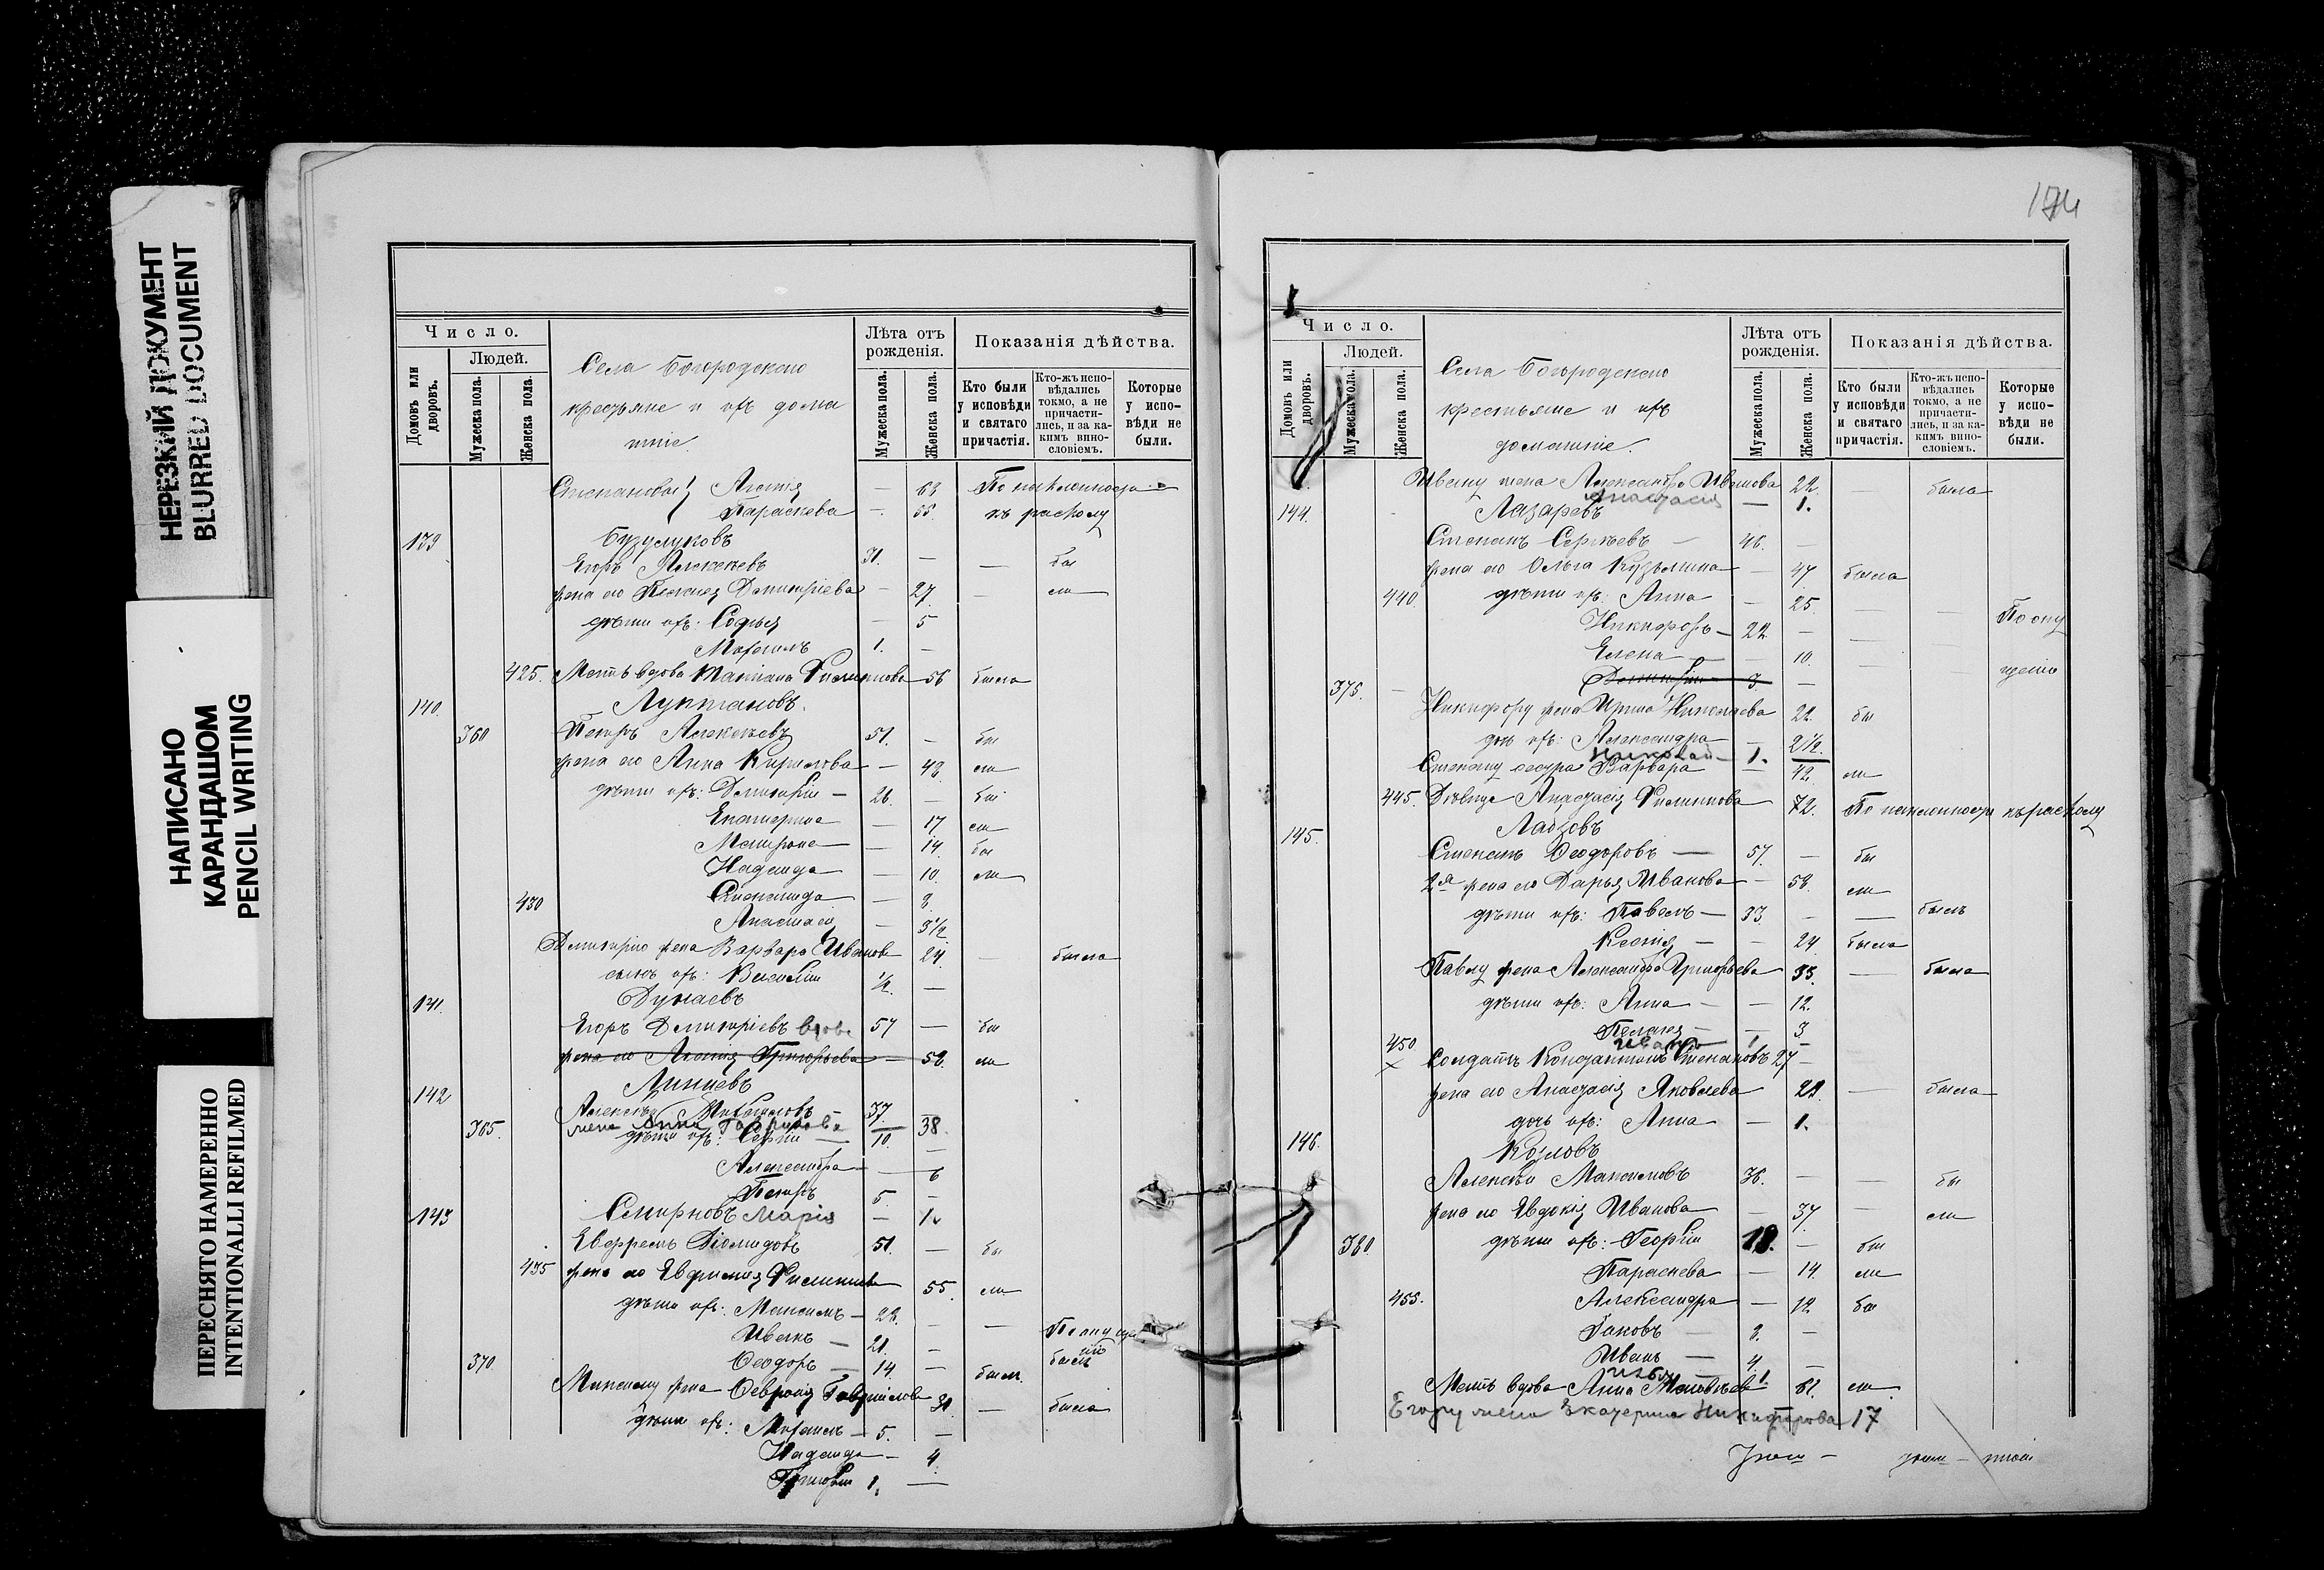 НЕРЕЗКИЙ ДОКУМЕНТ
BLURRED DOCUMENT
НАПИСАНО
КАРАНДАШОМ
PENCIL WRITING
ПЕРЕСНЯТО НАМЕРЕННО
INTENTIONALLI REFILMED
Число.
Людей.
Домовъ или дворовъ.
Мужеска пола.
Женска пола.
Села Богородскаго
крестьяне и ихъ дома
шніе.
Лѣта отъ рожденія.
Мужеска пола.
Женска пола.
Показанія дѣйства.
Кто были у исповѣди и святаго причастія.
Кто-жъ исповѣдались токмо, а не причастились, и за какимъ винословіемъ.
Которые у исповѣди не были.
Степановы Агафія — 63 По наклонности
Параскева — 65. къ расколу
139 Бузулуковъ
Егоръ Алексѣевъ 31. — — бы
жена его Пелагея Димитріева — 27. — ли
дѣти ихъ: Софья — 5
Михаилъ 1. —
425. Мать вдова Татіана Филиппова 56 была
140. Луктановъ.
360 Петръ Алексѣевъ 51. — бы
жена его Анна Кирилова — 48. ли
дѣти ихъ: Димитрій — 26. — бы
Екатерина — 17 ли
Матрона — 14. бы
Надежда — 10. ли
430 Степанида — 8.
Анастасія — 3½
Димитрію жена Варвара Иванова 24 — была
сынъ ихъ: Василій ½. —
141. Дунаевъ
Егоръ Димитріевъ вдовъ 57 — бы
жена его Агафія Григорьева — 52. ли
142 Линяевъ
Алексѣй Михайловъ — 37 —
365. жена Анна Гаврилова 38.
дѣти ихъ: Сергій — 10. —
Александра — — 6
Петръ 5. —
143 Смирновъ Марія — 1.
Евфремъ Діомидовъ 51. — бы
435 жена его Евфимія Филиппова 55. ли
дѣти ихъ: Максимъ — 28. — —
Иванъ — 21. —
370. Ѳеодоръ — 14. — былъ.
Максиму жена Ѳевронія Гаврилова 30. — была
дѣти ихъ: Михаилъ — 5. —
Надежда — 4.
Григорій 1. —
174
Число.
Людей.
Домовъ или дворовъ.
Мужеска пола.
Женска пола.
Села Богородскаго
крестьяне и ихъ
домашніе.
Лѣта отъ рожденія.
Мужеска пола.
Женска пола.
Показанія дѣйства.
Кто были у исповѣди и святаго причастія.
Кто-жъ исповѣдались токмо, а не причастились, и за какимъ винословіемъ.
Которые у исповѣди не были.
Ивану жена Александра Иванова 22. — была
Анастасія — 1.
144. Лазаревъ
Степанъ Сергѣевъ — 46. —
жена его Ольга Кузьмина — 47 была
440. дѣти ихъ: Анна — 25. — —
Никифоръ — 22 — — По опу
Елена — — 10. — щенію
375. — Димитрій 3. —
Никифору жена Ирина Николаева 22. бы
дочь ихъ: Александра — — 2½.
Николай — 1.
Степану сестра Варвара — 42. ли
445. Дѣвица Анастасія Филиппова 72. По наклонности къ расколу
145. Лабзовъ
Степанъ Ѳеодоровъ — 57. — бы
2я жена его Дарья Иванова — 58. ли
дѣти ихъ: Павелъ — 33. — — былъ
Ксенія — — 24 была
Павлу жена Александра Григорьева 33. — была
дѣти ихъ: Анна — — 12.
450 Пелагея — — 3
Иванъ 1 —
× Солдатъ Константинъ Степановъ 27 —
жена его Анастасія Яковлева 22. — была
дочь ихъ: Анна — 1.
146. Козловъ
Алексѣй Максимовъ 36. — — бы
жена его Евдокія Иванова — 37. — ли
380. дѣти ихъ: Георгій 18. — бы
Параскева — 14. ли
455. Александра — 12 бы
Іаковъ — 8. —
Иванъ — 4. —
Мать вдова Анна Матвѣева 61. ли
Егору жена Екатерина Никифорова 17